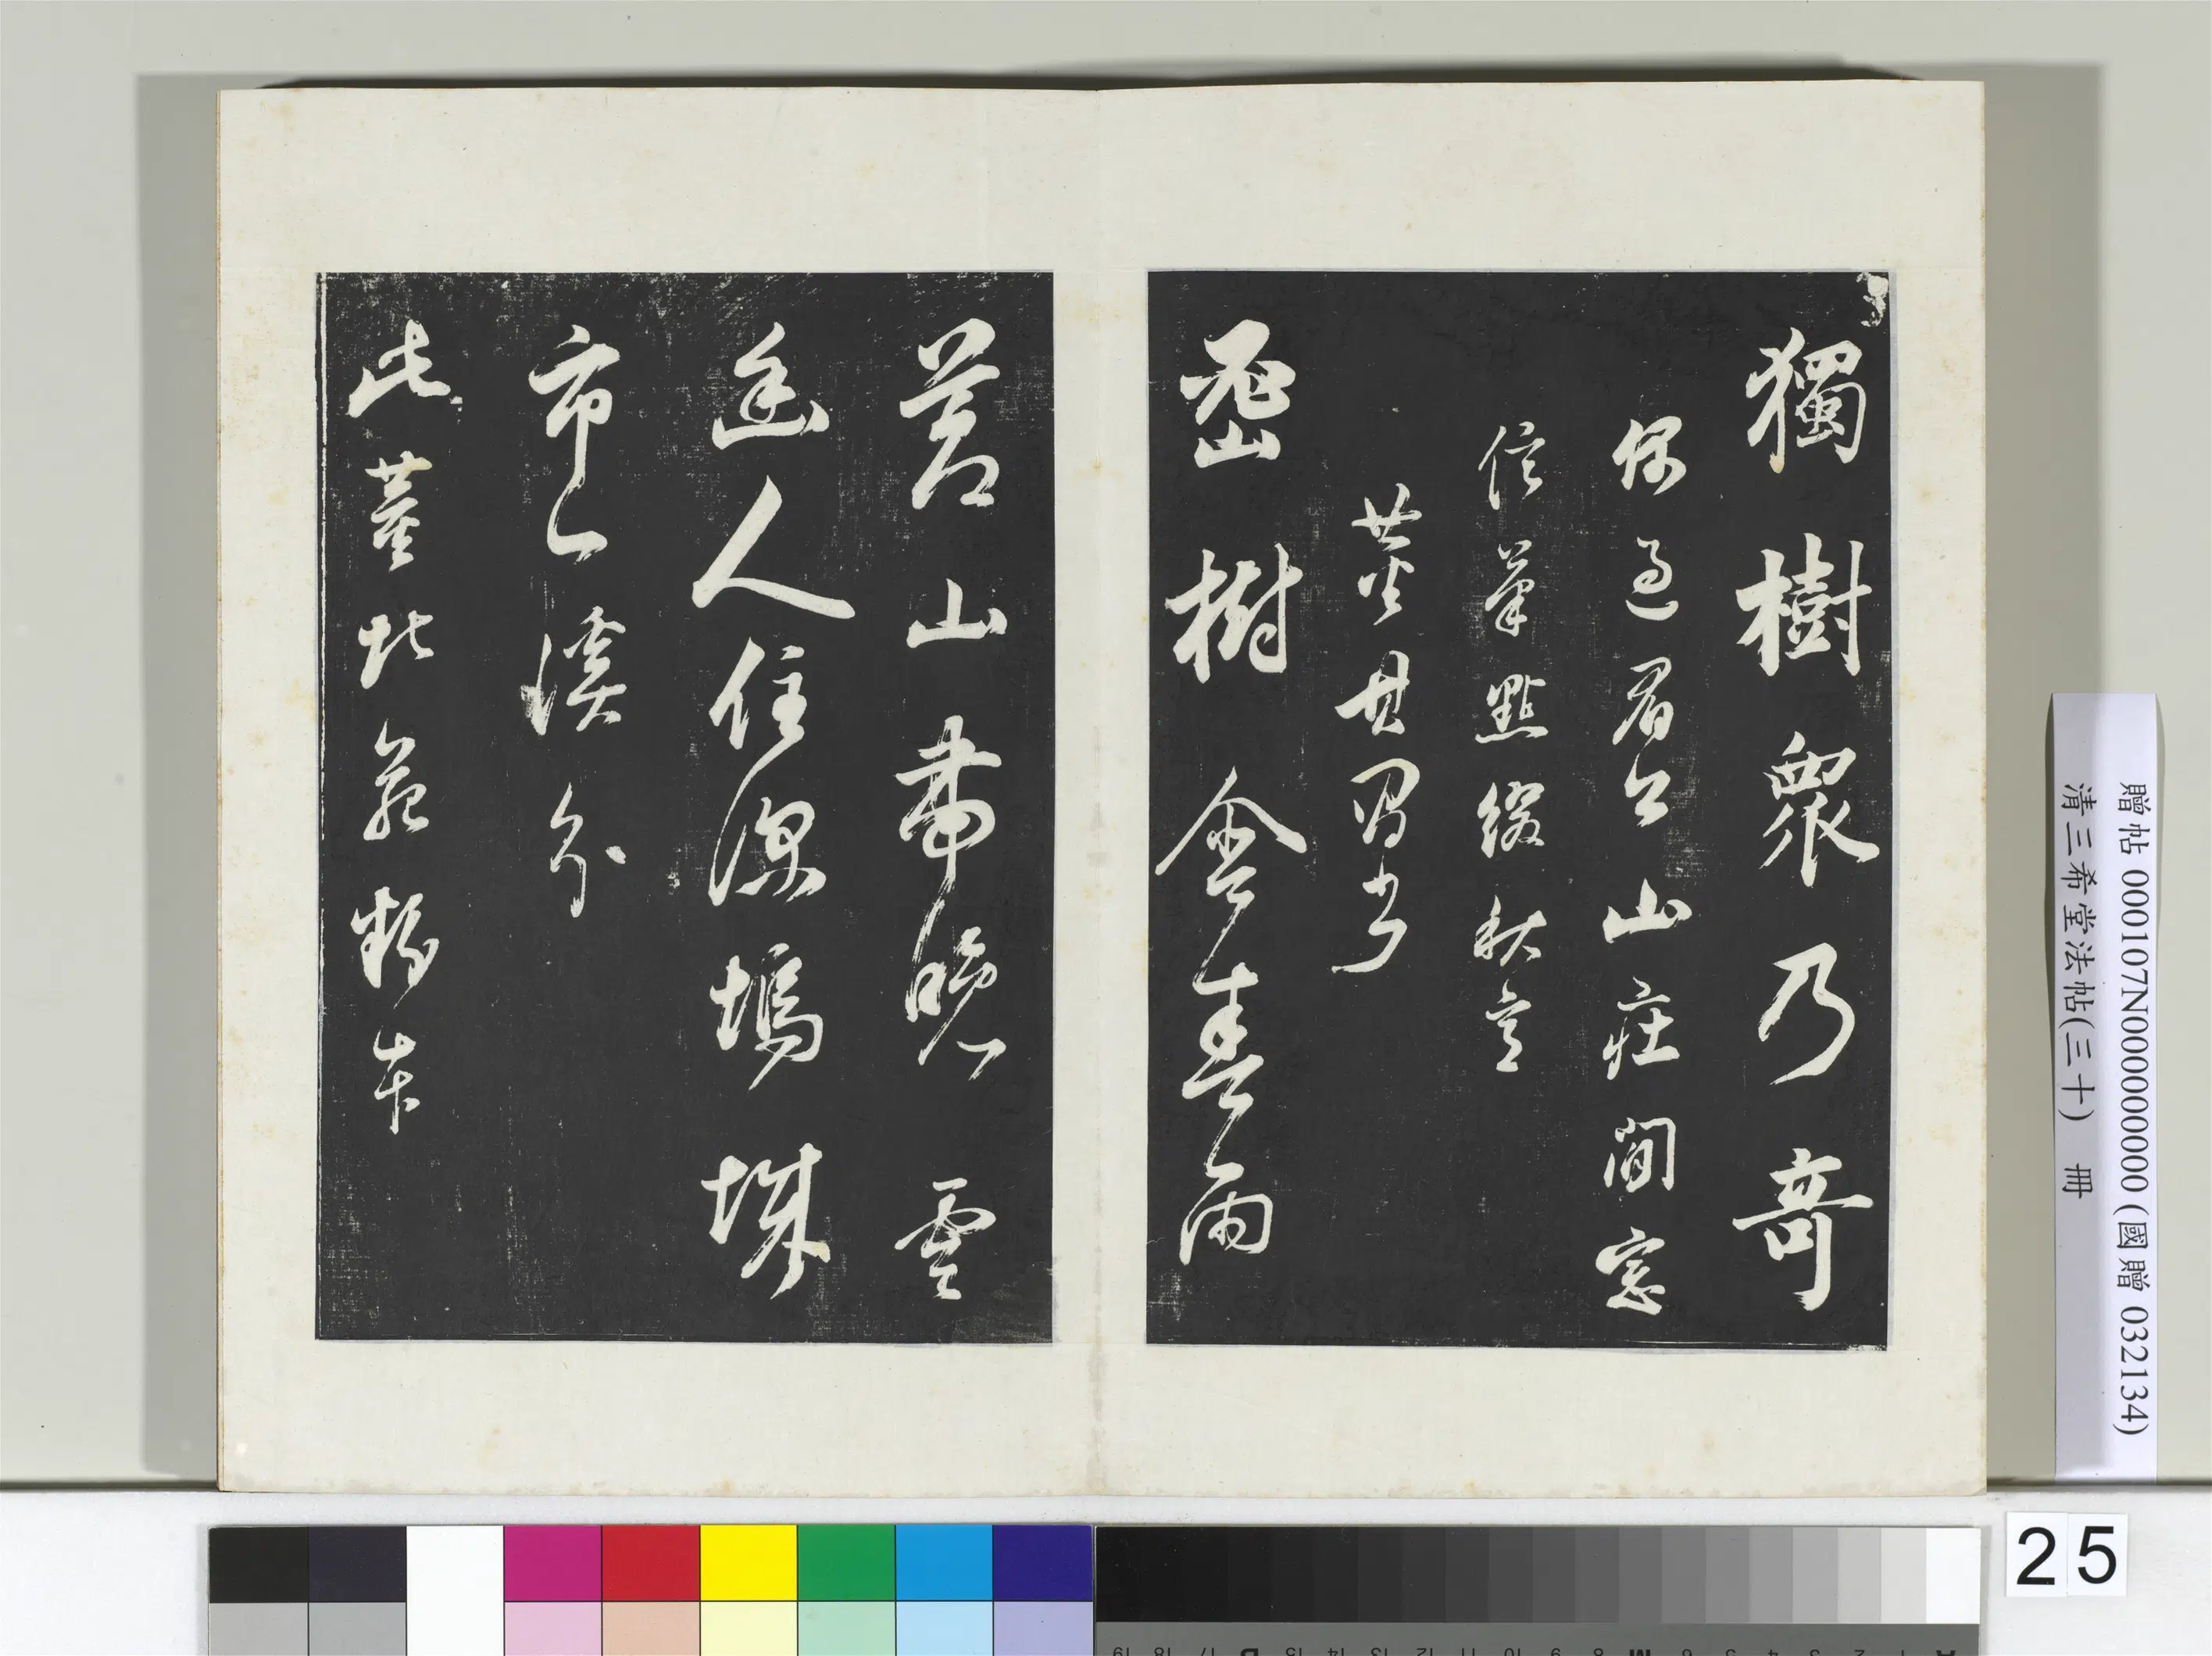 獨樹眾乃奇
偶過眉公山莊閒窗
信筆點綴秋意
董其昌書
密樹含春雨
蒼山帶晚雲
幽人住深塢城
市一溪分
此董北苑粉本
贈帖 000107N000000000 (國贈 032134)
清三希堂法帖(三十) 冊
25